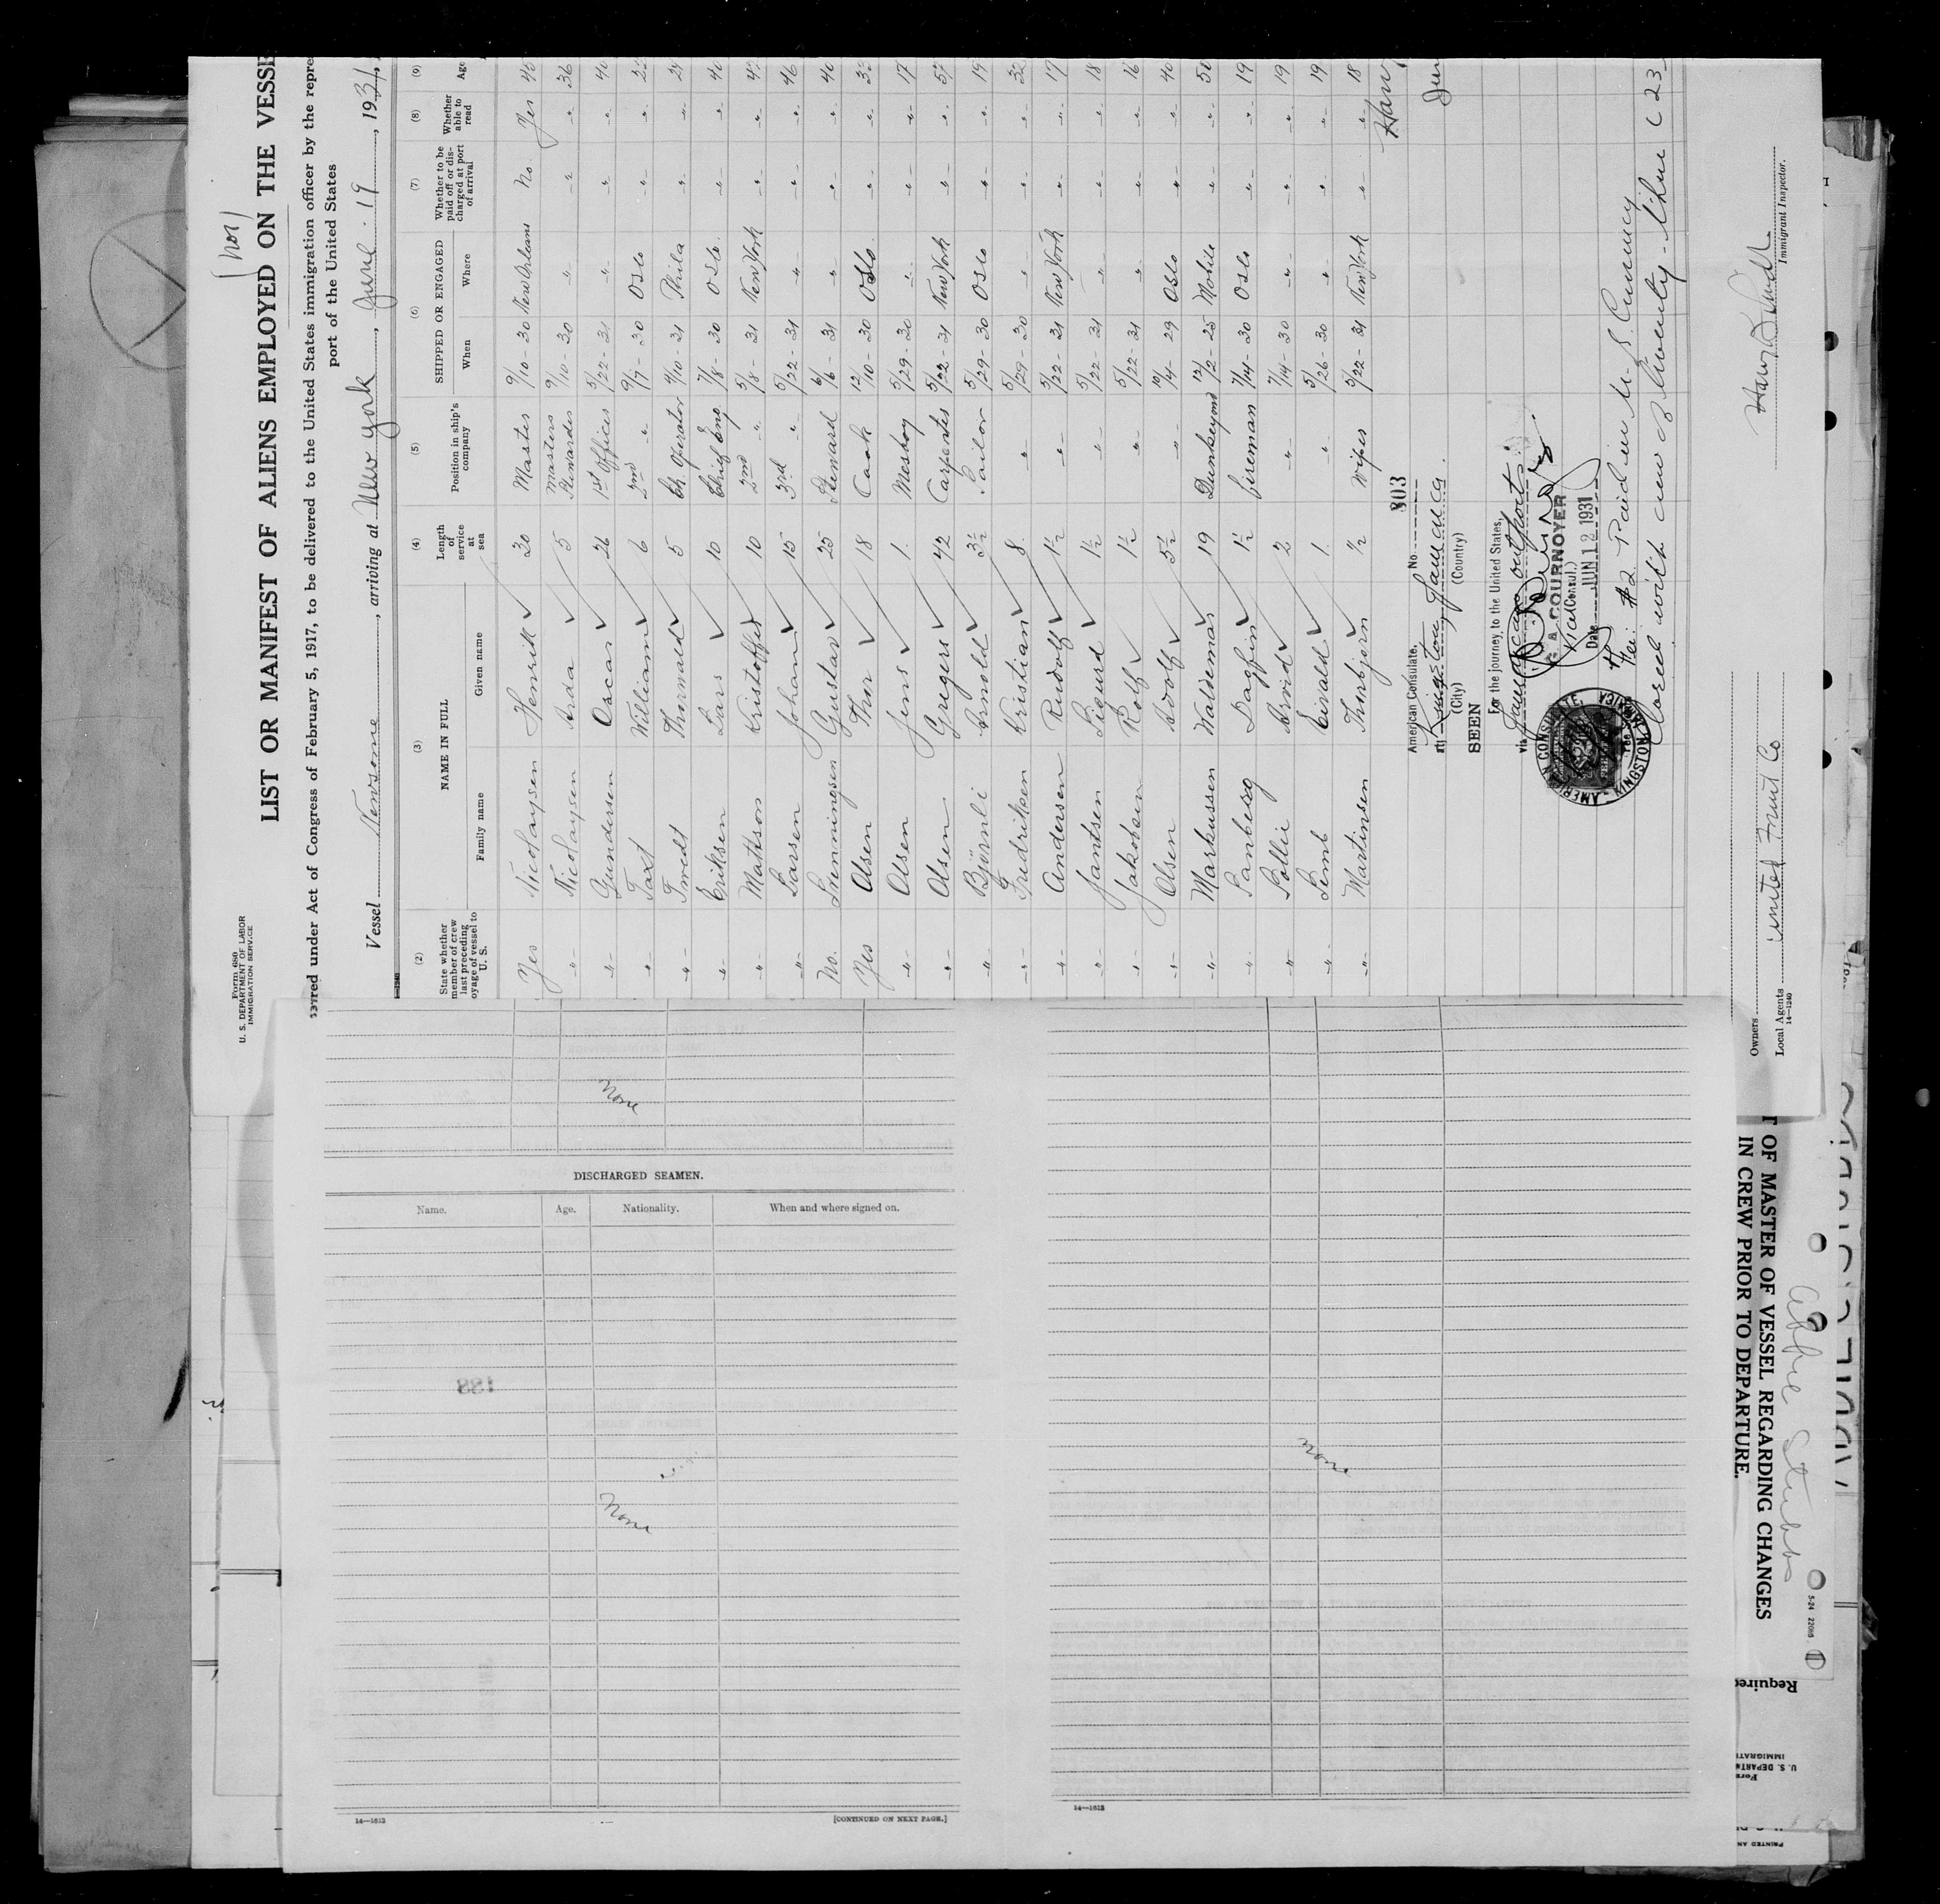 Form 680
U. S. DEPARTMENT OF LABOR
IMMIGRATION SERVICE
(nor)
LIST OR MANIFEST OF ALIENS EMPLOYED ON THE VESSE
ired under Act of Congress of February 5, 1917, to be delivered to the United States immigration officer by the repre
port of the United States
Vessel Newsome, arriving at New York, June 19, 1931.
(2) (3) (4) (5) (6) (7) (8) (9)
State whether member of crew last preceding oyage of vessel to U. S. NAME IN FULL Family name Given name Length of service at sea Position in ship's company SHIPPED OR ENGAGED When Where Whether to be paid off or discharged at port of arrival Whether able to read Age
Yes Nicolaysen Henrik 30 Master 9/10 - 30 New Orleans No. Yes 45
-"- Nicolaysen Arda 5 Masters Stewardes 9/10 - 30 " -"- -"- 36
-"- Gundersen Oscar 26 1st Officer 5/22 - 31 -"- -"- -"- 40
-"- Taxt William 6 2nd -"- 9/7 - 30 Oslo -"- -"-
-"- Tvedt Thorvald 5 Ch. Operator 4/10 - 31 Phila -"- -"- 24
-"- Eriksen Lars 10 Chief Eng 7/8 - 30 Oslo. -"- -"- 40
-"- Mattson Kristoffer 10 2nd -"- 5/8 - 31 New York -"- -"-
-"- Larsen Johan 15 3rd -"- 5/22 - 31 -"- -"- -"- 46
No. Gustav 25 Steward 6/6 - 31 -"- -"- -"- 40
Yes Olsen Thor 18 Cook 12/10 - 30 Oslo -"- -"-
-"- Olsen Jens 1. Mesboy 5/29 - 30 -"- -"- -"- 17
-"- Olsen Gregers 42 Carpenter 5/22 - 31 New York -"- -"- 57
-"- Björnli Arnold 3½ Sailor 5/29 - 30 Oslo -"- -"- 19
-"- Fredriksen Kristian 8. -"- 5/29 - 30 -"- -"- -"- 32
-"- Andersen Rudolf 1½ -"- 5/22 - 31 New York -"- -"- 17
-"- Jantsen Sigurd 1½ -"- 5/22 - 31 -"- -"- -"- 18
-"- Jakobsen Rolf 1½ -"- 5/22 - 31 -"- -"- -"- 16
-"- Olsen Adolf 5½ -"- 10/4 - 29 Oslo -"- -"- 40
-"- Markussen Waldemar 19 Dunkeyman 12/2 - 25 Mobile -"- -"- 50
-"- Sandberg Dagfin 1½ Fireman 7/14 - 30 Oslo -"- -"- 19
-"- Arvid 2 -"- 7/14 - 30 -"- -"- -"- 19
-"- Eivald 1. -"- 5/26 - 30 -"- -"- -"- 19
-"- Martinsen Thorbjorn ½ Wiper 5/22 - 31 New York -"- -"- 18
803
American Consulate, No
at Kingston Jamaica
(City) (Country)
SEEN
For the journey to the United States,
via Jamaican outports
G A COURNOYER
Vice Consul.
Date JUN 12 1931
AMERICAN CONSULATE, KINGSTON, JAMAICA
Fee: #2 Paid in U. S. Currency
Closed with crew of twenty-three (23
Immigrant Inspector.
Owners
Local Agents United Fruit Co
14—1240
None
DISCHARGED SEAMEN.
Name. Age. Nationality. When and where signed on.
None
14—1613 [CONTINUED ON NEXT PAGE.]
None
14—1613
T OF MASTER OF VESSEL REGARDING CHANGES
IN CREW PRIOR TO DEPARTURE.
5-24 22086
Required